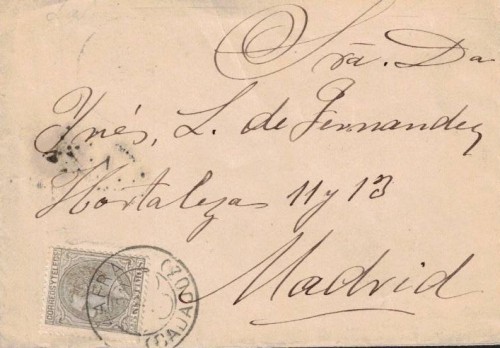 Srã. Da
Ynés, L. de Fernandez
Hortalezas 11 y 13
Madrid
CORREOS Y TELEGS